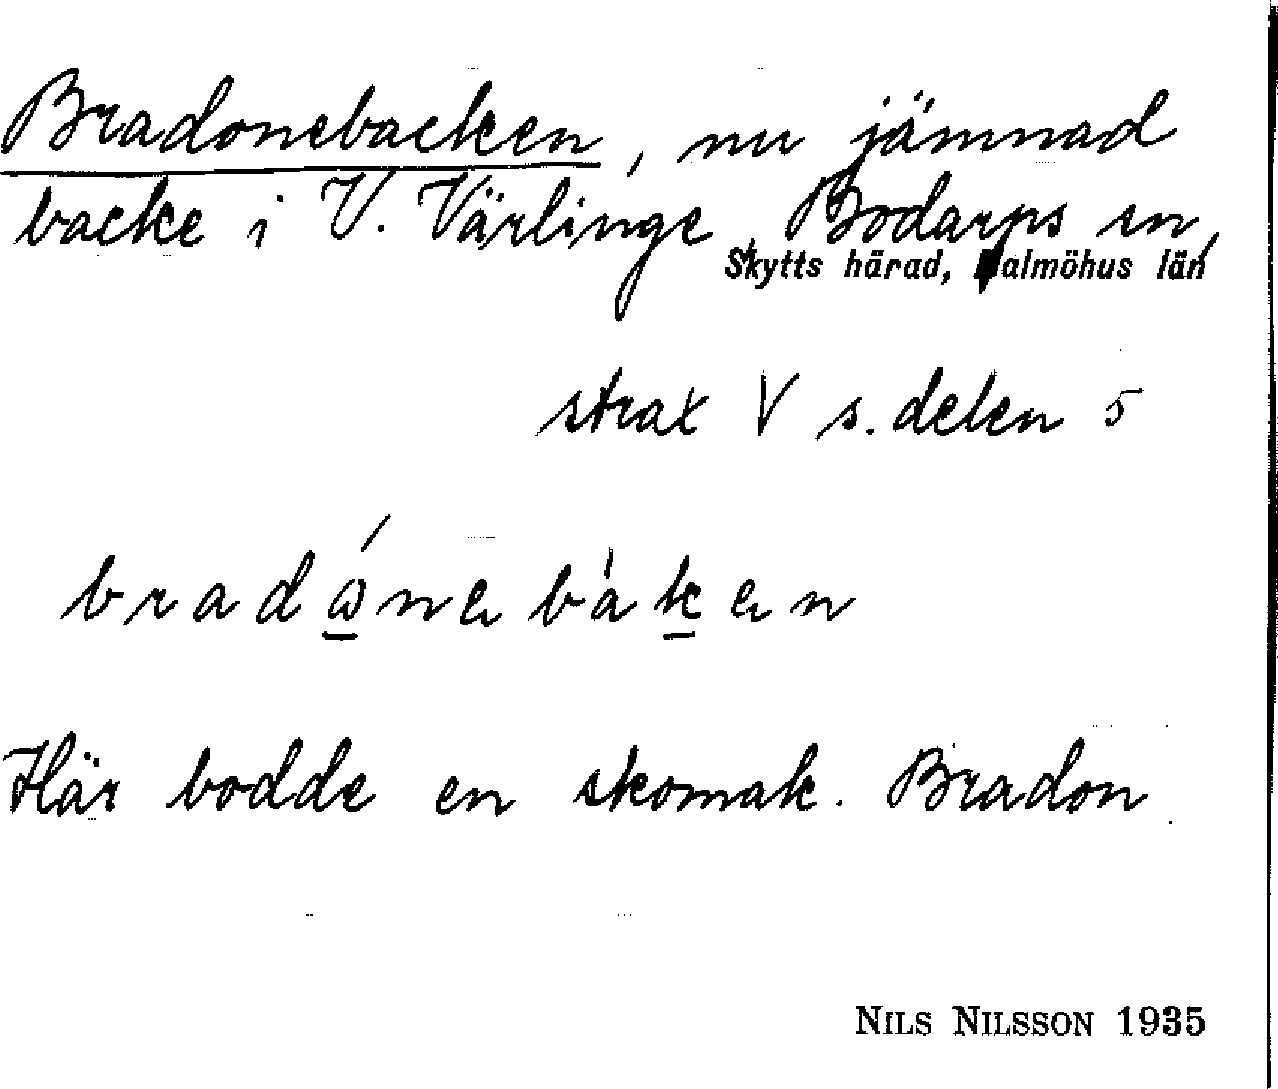 Bradonebacken, nu jämnad
backe i V. Värlinge, Bodarps sn,
Skytts härad, Malmöhus län
strax V s. delen 5
bradώnebàken
Här bodde en skomak. Bradon.
NILS NILSSON 1935